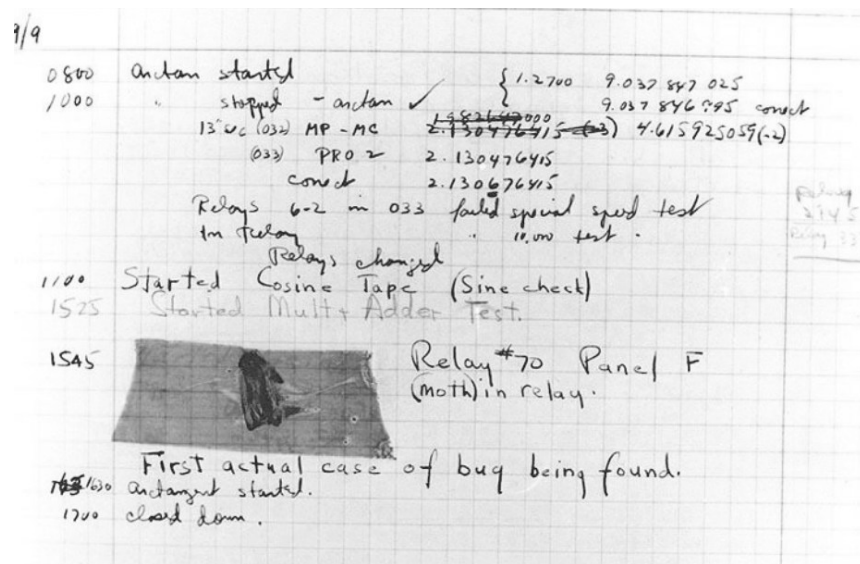 9/9
0800 arctan started { 1.2700 9.037 847 025
1000 " stopped - arctan ✓ 9.037 846 995 correct
13"uc (032) MP - MC 2.130476415 (-3) 4.615925059(-2)
(033) PRO 2 2.130476415
correct 2.130676415
Relays 6-2 in 033 failed special speed test
In relay " 10,000 test .
Relays changed
1100 Started Cosine Tape (Sine check)
1525 Started Mult + Adder Test.
1545 Relay #70 Panel F
(moth) in relay.
First actual case of bug being found.
1630 arctangent started.
1700 closed down.
Relay
Relay 33